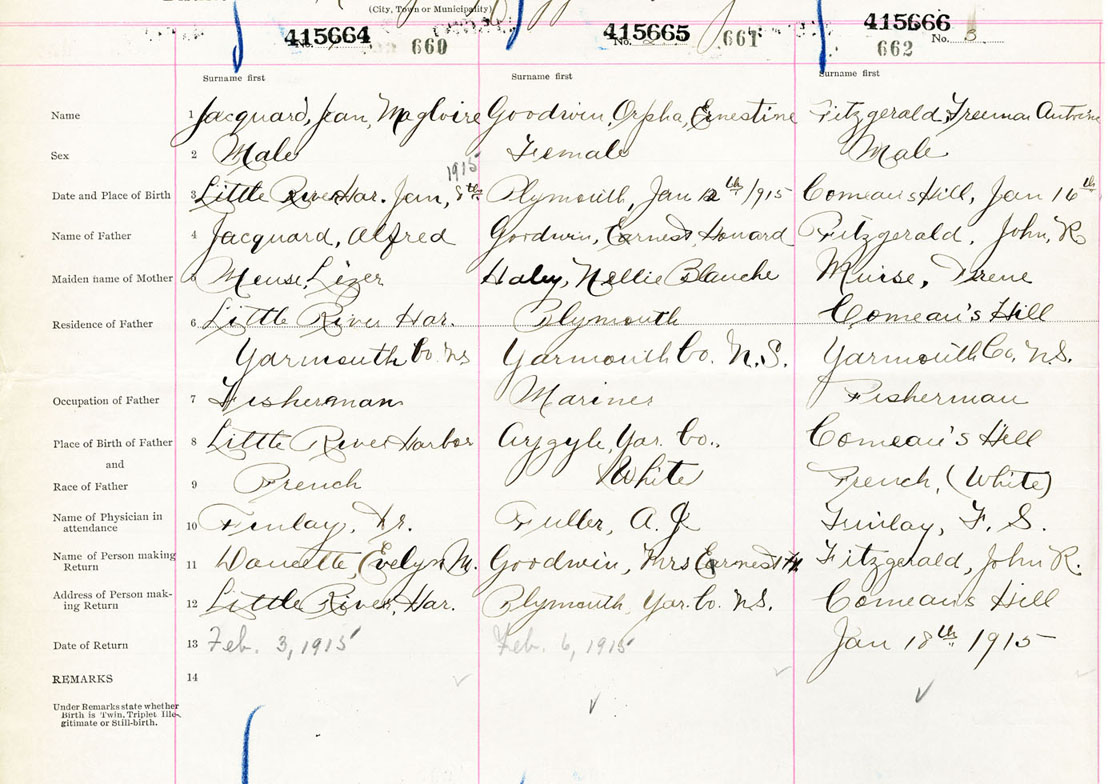 (City, Town or Municipality)
415664 415665 415666
No. 660 No. 661 662 No. 3
Surname first Surname first Surname first
Name 1 Jacquard, Jean, Magloire Goodwin, Orpha, Ernestine Fitzgerald, Freeman Antoine
Sex 2 Male Female Male
1915
Date and Place of Birth 3 Little River Har. Jan, 8th Plymouth, Jan 12th /915 Comeau's Hill, Jan 16th
Name of Father 4 Jacquard, Alfred Goodwin, Earnest, Howard Fitzgerald, John, R
Maiden name of Mother 5 Meuse, Lizer Haley, Nellie Blanche Muise, Irene
Residence of Father 6 Little River Har. Plymouth Comeau's Hill
Yarmouth Co. NS Yarmouth Co. N.S. Yarmouth Co, N.S.
Occupation of Father 7 Fisherman Mariner Fisherman
Place of Birth of Father 8 Little River Harbor Argyle, Yar. Co., Comeau's Hill
and
Race of Father 9 French White French, (White)
Name of Physician in
attendance 10 Finlay, Dr. Fuller, A. J. Finlay, F. S.
Name of Person making
Return 11 Doucette, Evelyn M. Goodwin, Mrs Earnest H. Fitzgerald, John R.
Address of Person mak-
ing Return 12 Little River, Har. Plymouth, Yar. Co. N.S. Comeau's Hill
Date of Return 13 Feb. 3, 1915 Feb. 6, 1915 Jan 18th 1915
REMARKS 14
Under Remarks state whether
Birth is Twin, Triplet Ille-
gitimate or Still-birth.